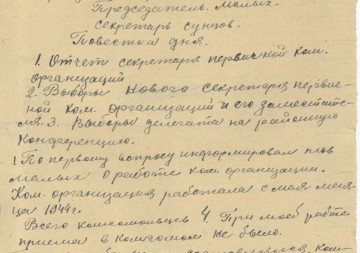 Председатель. Малых
секретарь Сунцов.
Повестка дня.
1. Отчет секретаря первичной ком.
организаций
2. Выборы нового секретаря первич-
ной ком. организаций и его заместите-
ля. 3. Выборы делегата на районную
Конференцию.
1 По первому вопросу информировал тов
Малых о работе ком. организации.
Ком. организация работала с мая меся-
ца 1944г.
Всего комсомольцев 4 При моей работе
приема в комсомол не было.
ком-